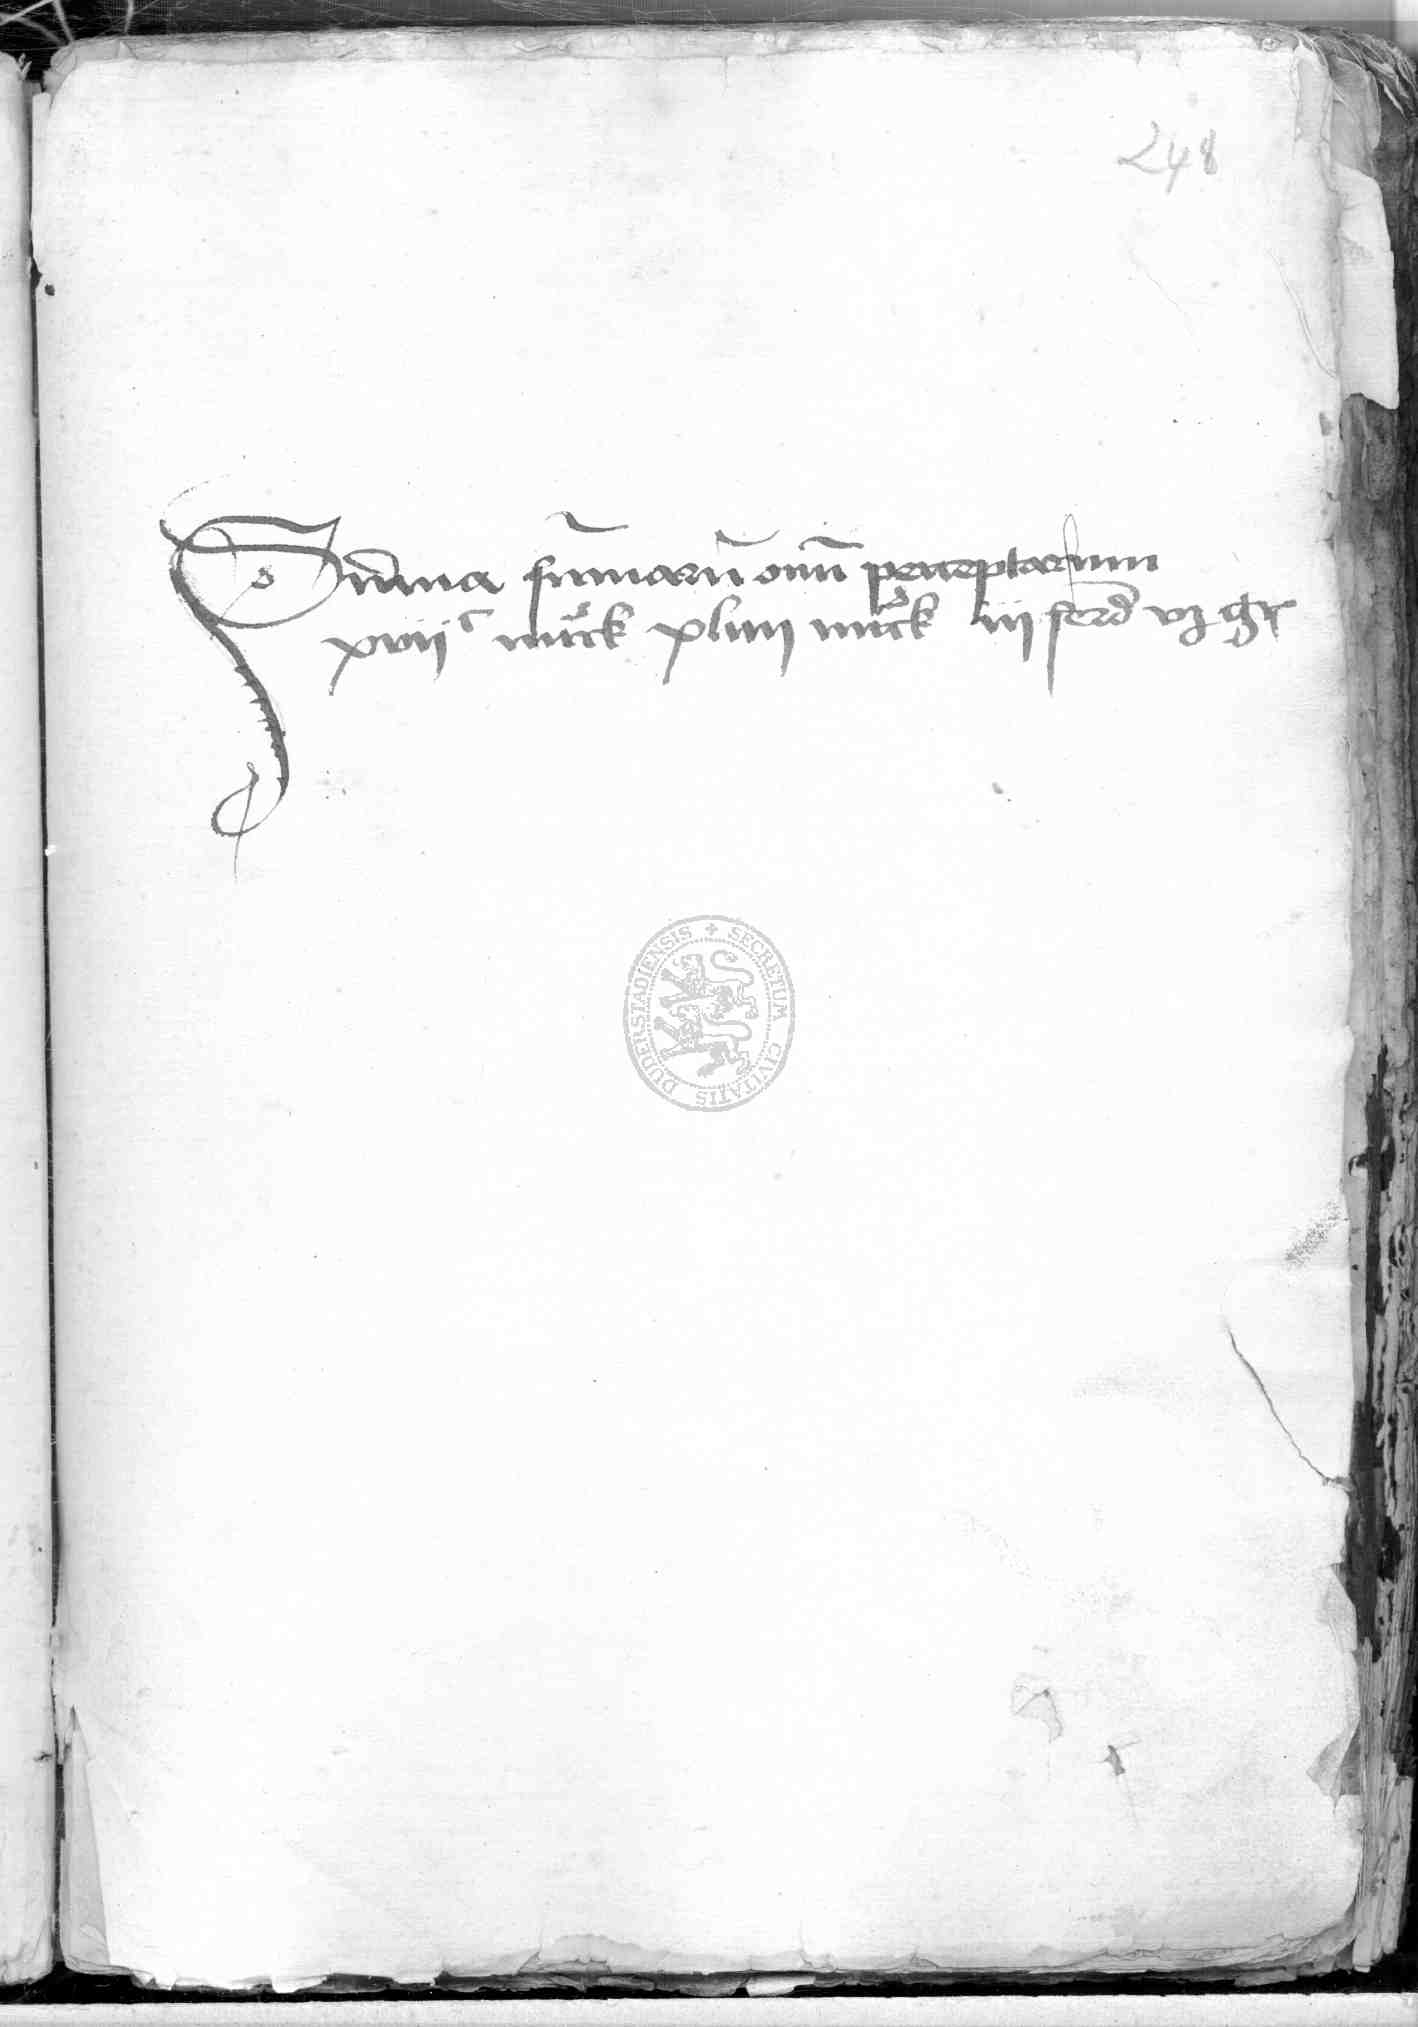 248
Sūma sūmarū oīm̄ perceptarum
xvijᶜ mͣrck xliiij mͣrck iij ferd̄ vj gͬ
SECRETUM CIVITATIS DUDERSTADIENSIS